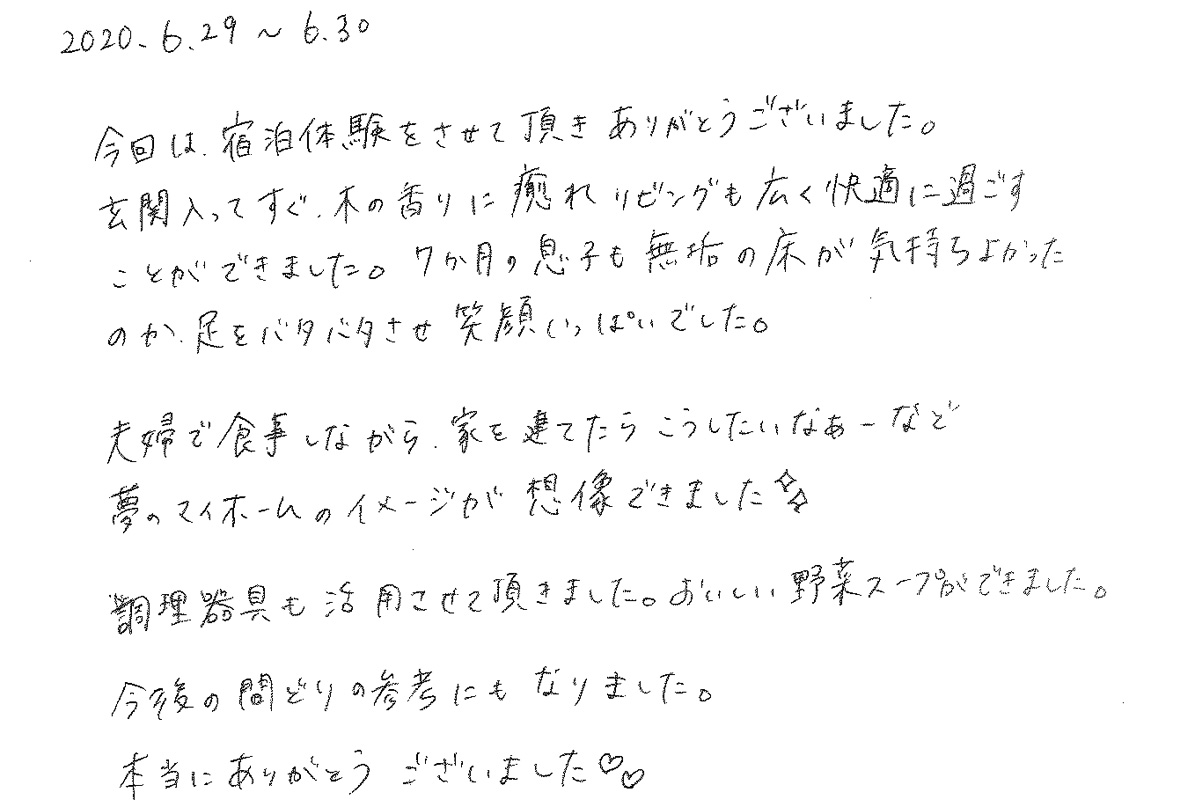 2020.6.29～6.30
今回は、宿泊体験をさせて頂きありがとうございました。
玄関入ってすぐ、木の香りに癒れリビングも広く快適に過ごす
ことができました。7か月の息子も無垢の床が気持ちよかった
のか、足をバタバタさせ笑顔いっぱいでした。
夫婦で食事しながら、家を建てたらこうしたいなぁーなど
夢のマイホームのイメージが想像できました✧✧
調理器具も活用させて頂きました。おいしい野菜スープができました。
今後の間どりの参考にもなりました。
本当にありがとうございました♡♡